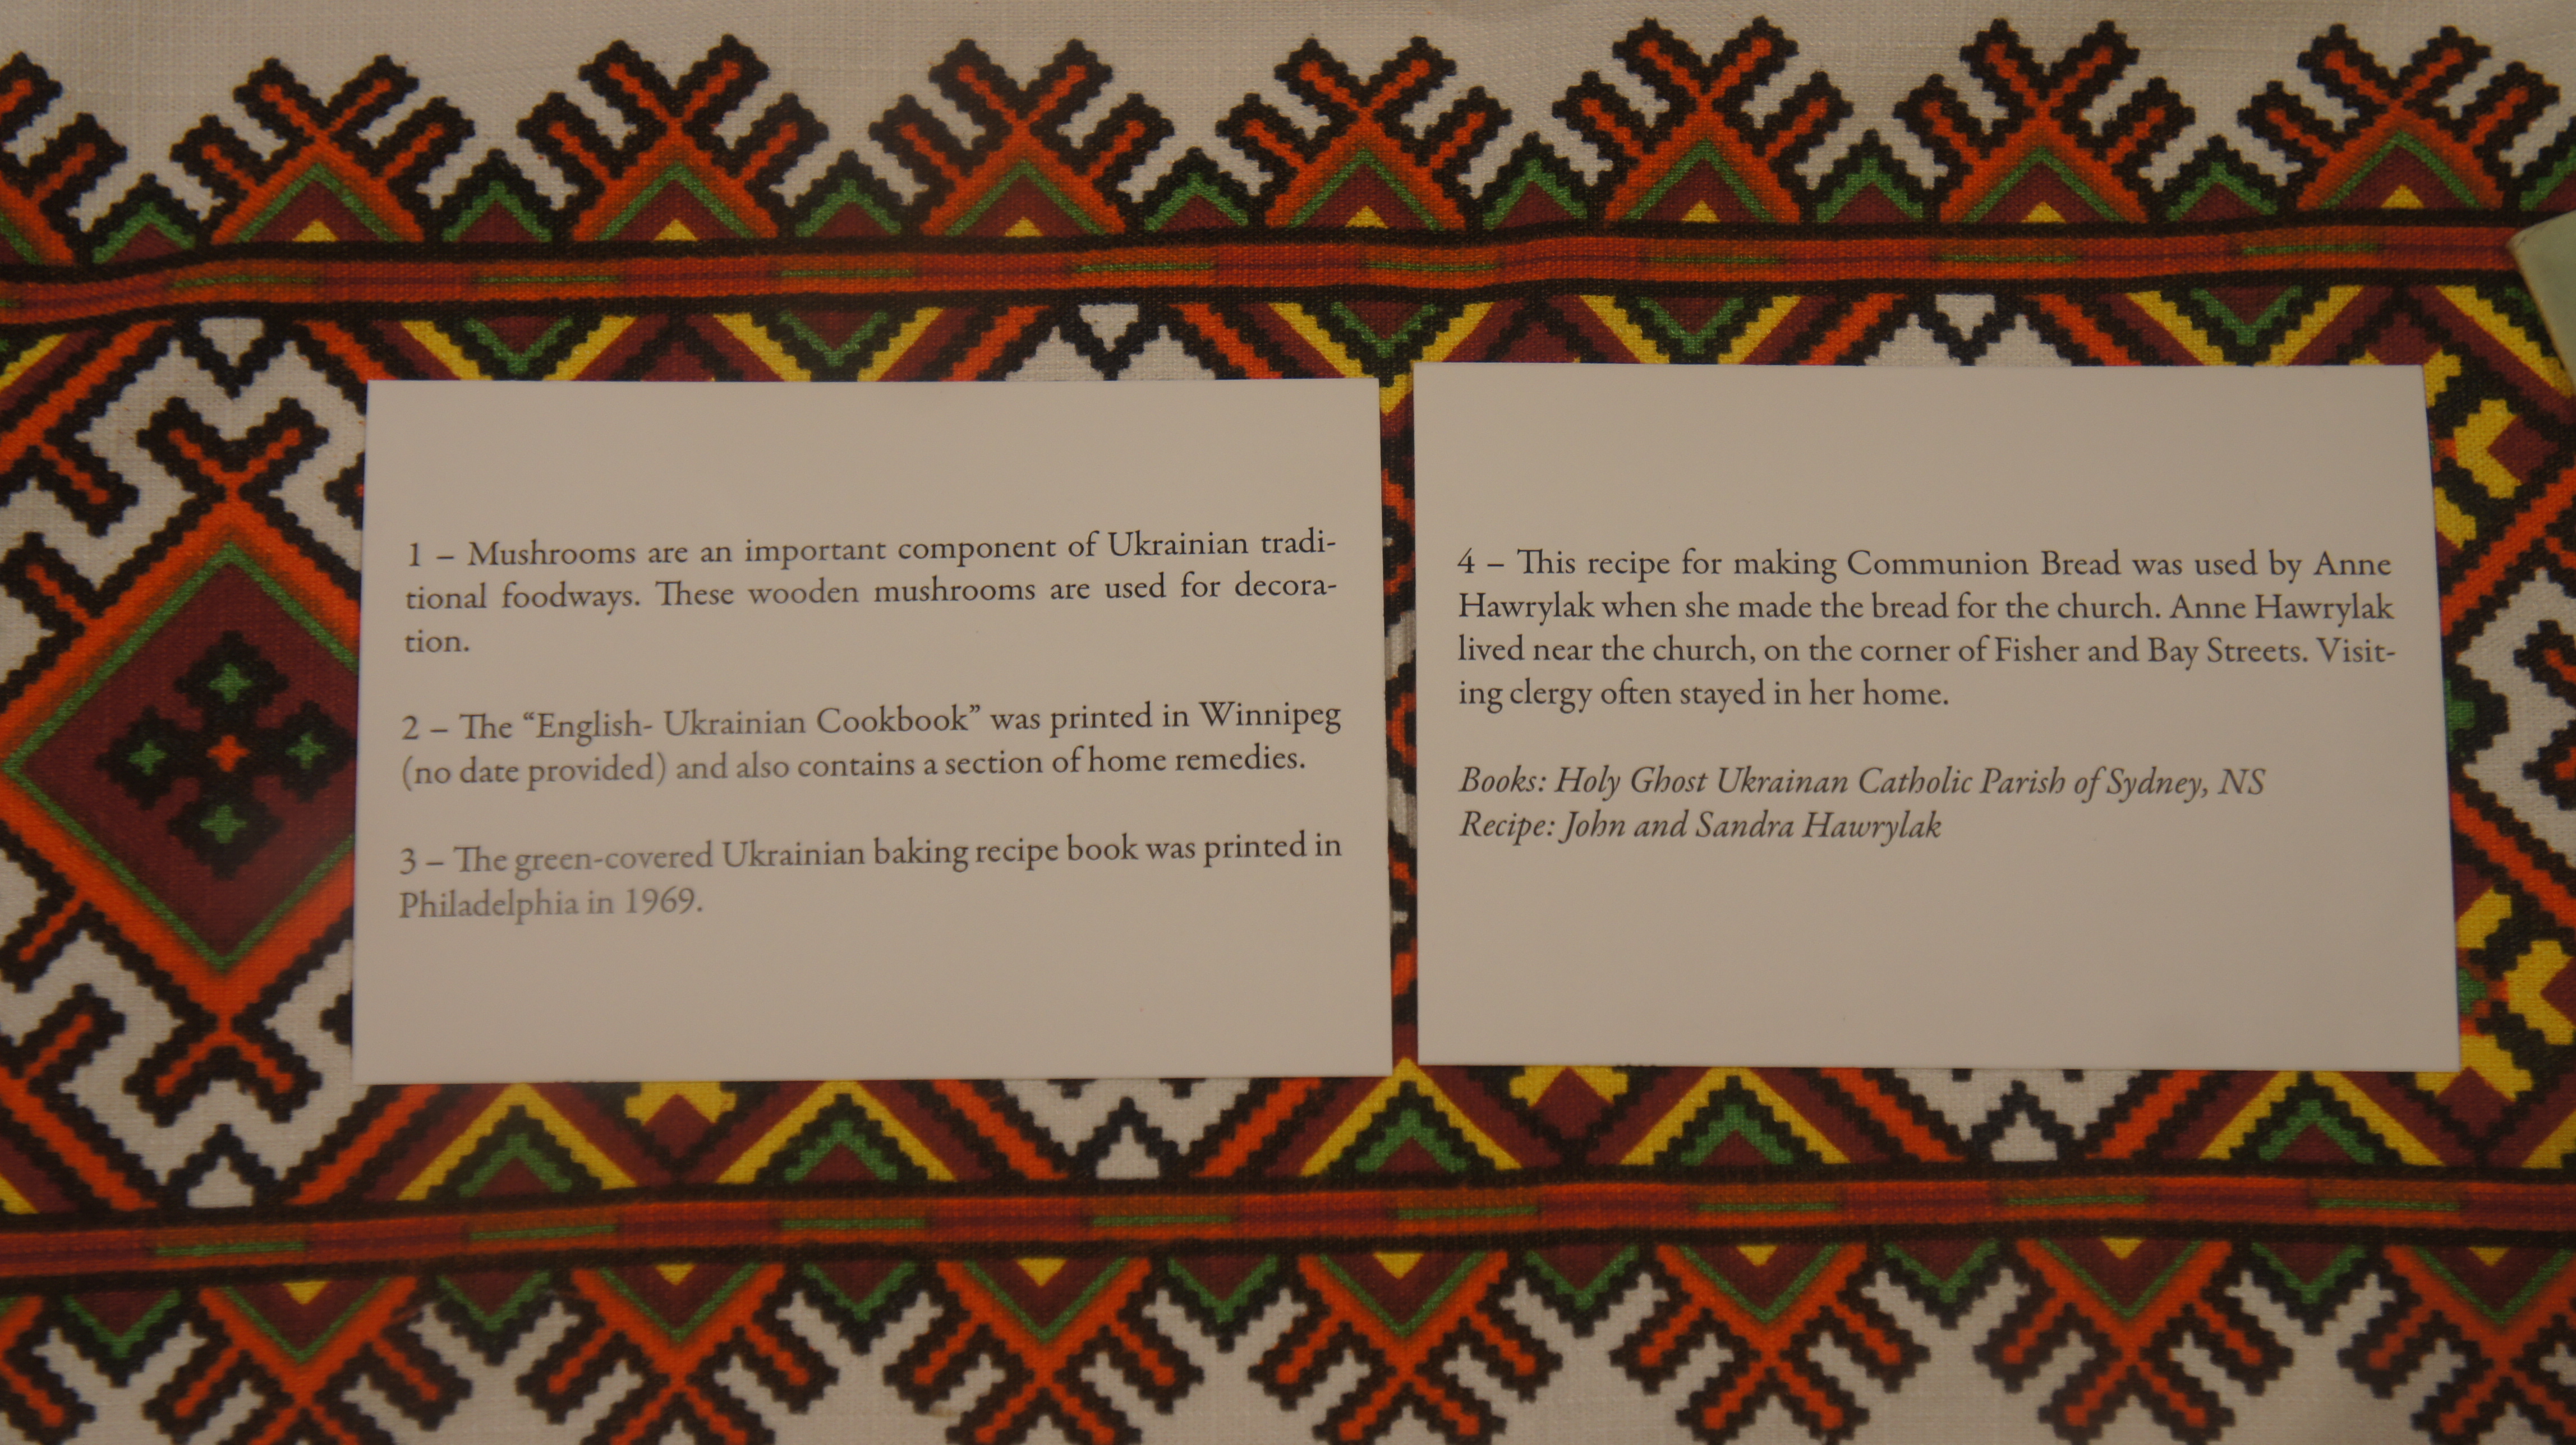 1 – Mushrooms are an important component of Ukrainian tradi-
tional foodways. These wooden mushrooms are used for decora-
tion.
2 – The “English- Ukrainian Cookbook” was printed in Winnipeg
(no date provided) and also contains a section of home remedies.
3 – The green-covered Ukrainian baking recipe book was printed in
Philadelphia in 1969.
4 – This recipe for making Communion Bread was used by Anne
Hawrylak when she made the bread for the church. Anne Hawrylak
lived near the church, on the corner of Fisher and Bay Streets. Visit-
ing clergy often stayed in her home.
Books: Holy Ghost Ukrainan Catholic Parish of Sydney, NS
Recipe: John and Sandra Hawrylak